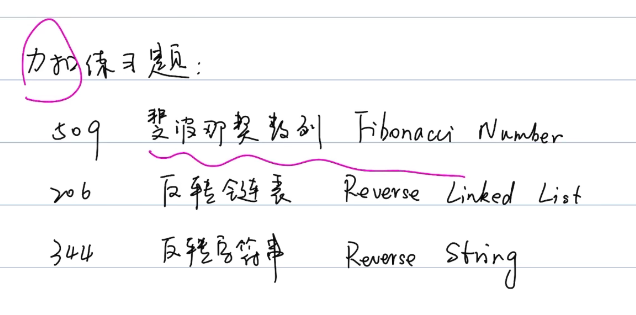 力扣练习题:
509 斐波那契数列 Fibonacci Number
206 反转链表 Reverse Linked List
344 反转字符串 Reverse String